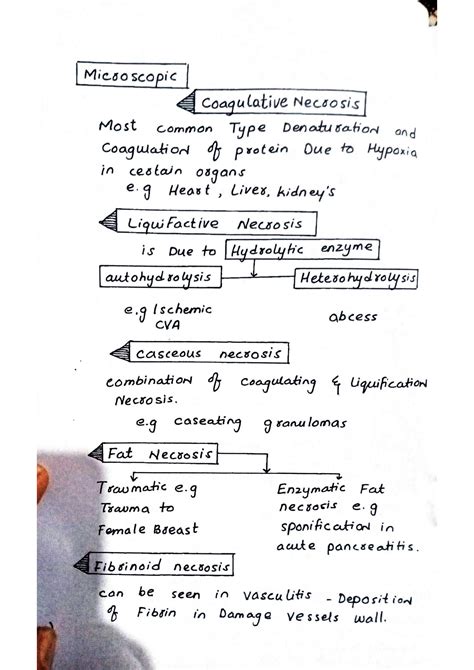 Microscopic
Coagulative Necrosis
Most common Type Denaturation and
Coagulation of protein Due to Hypoxia
in certain organs
e.g Heart, Liver, kidney's
Liquifactive Necrosis
is Due to Hydrolytic enzyme
autohydrolysis Heterohydrolysis
e.g Ischemic abcess
CVA
casceous necrosis
combination of coagulating & Liquification
Necrosis.
e.g caseating granulomas
Fat Necrosis
Traumatic e.g
Trauma to
Female Breast
Enzymatic Fat
necrosis e.g
sponification in
acute pancreatitis.
Fibrinoid necrosis
can be seen in vasculitis - Deposition
of Fibrin in Damage vessels wall.